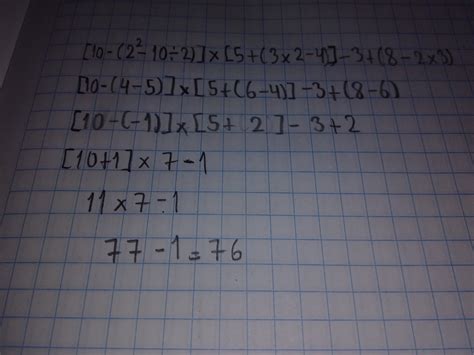 [10-(2²-10÷2)]×[5+(3×2-4)]-3+(8-2×3)
[10-(4-5)]×[5+(6-4)]-3+(8-6)
[10-(-1)]×[5+2]-3+2
[10+1]×7-1
11×7-1
77-1=76